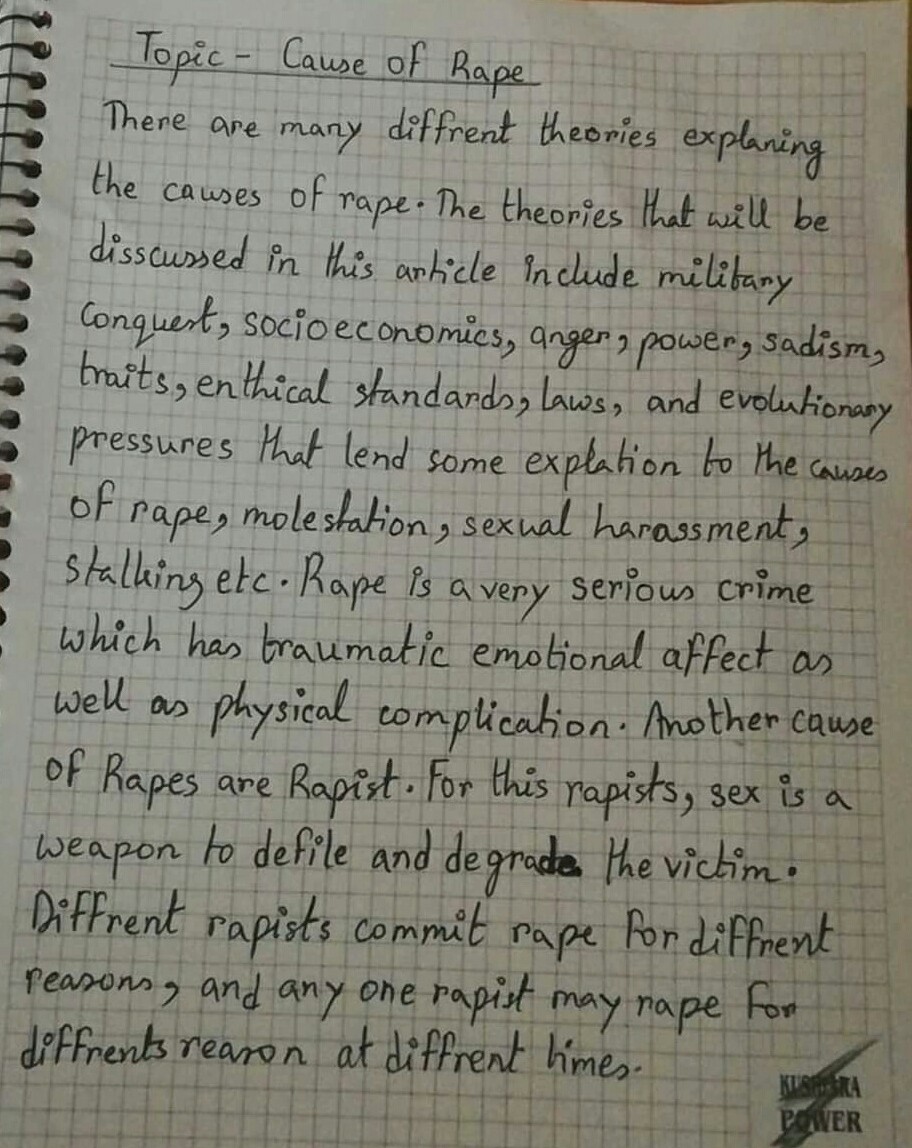 Topic - Cause of Rape
There are many diffrent theories explaning
the causes of rape. The theories that will be
disscussed in this article include military
Conquest, socioeconomics, anger, power, sadism,
traits, enthical standards, laws, and evolutionary
pressures that lend some explation to the causes
of rape, molestation, sexual harassment,
stalking etc. Rape is a very serious crime
which has traumatic emotional affect as
well as physical complication. Another cause
of Rapes are Rapist. For this rapists, sex is a
weapon to defile and degrade the victim.
Diffrent rapists commit rape for diffrent
reasons, and any one rapist may rape for
diffrents reason at diffrent times.
POWER